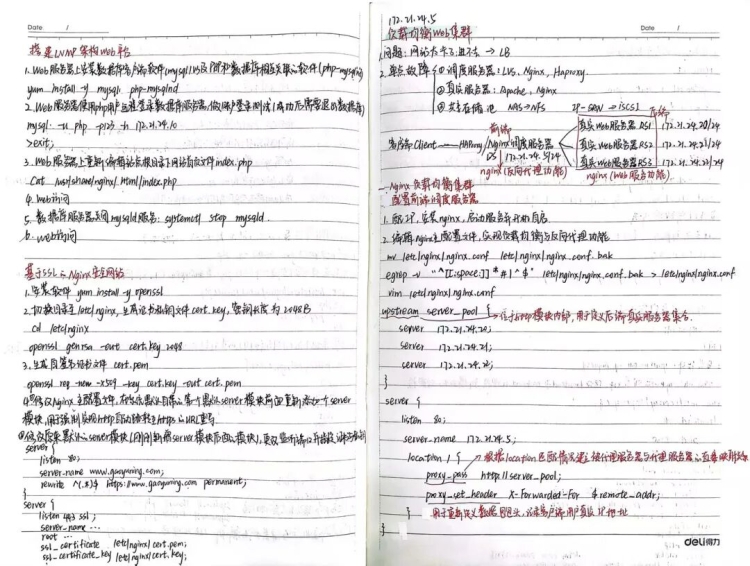 Date /
搭建LNMP架构Web平台
1. Web服务器上安装数据库客户端软件(mysql)以及PHP和数据库相互关联的软件(php-mysqlnd)
yum install -y mysql php-mysqlnd
2. Web服务器使用php用户远程登录数据库服务器,做用户登录测试(成功后需要退出数据库)
mysql -u php -p123 -h 172.21.24.10
>exit;
3. Web服务器上重新编辑站点根目录下网站首页文件index.php
Cat /usr/share/nginx/html/index.php
4. web访问
5. 数据库服务器关闭mysqld服务: systemctl stop mysqld.
6. web访问
基于SSL的Nginx安全网站
1. 安装软件 yum install -y openssl
2. 切换目录至/etc/nginx, 生成证书私钥文件cert.key, 密钥长度为2048B
cd /etc/nginx
openssl genrsa -out cert.key 2048
3. 生成自签名证书文件 cert.pem
openssl req -new -x509 -key cert.key -out cert.pem
4. 修改Nginx主配置文件,
server模块前面重新添加一个server
模块,用于强制实现http自动跳转至https的URL重写.
server {
listen 80;
server-name www.gaoyuming.com;
rewrite ^(.*)$ https://www.gaoyuming.com permanent;
}
server {
listen 443 ssl;
server_name …
root …
ssl_certificate /etc/nginx/cert.pem;
ssl_certificate_key /etc/nginx/cert.key;
172.21.24.5
负载均衡Web集群
Date /
1.问题: 网站大了 → LB
2. 单点故障 ① 调度服务器: LVS、Nginx、Haproxy.
② 真实服务器: Apache、Nginx
③ 共享存储池 NAS→NFS IP-SAN → iSCSI
前端 后端
客户端Client HAProxy/Nginx调度服务器
DS 172.21.24.5/24
nginx(反向代理功能)
真实Web服务器RS1 172.21.24.20/24
真实Web服务器RS2 172.21.24.21/24
真实Web服务器RS3 172.21.24.22/24
nginx(Web服务功能)
Nginx负载均衡集群
配置前端调度服务器
1. 配IP, 安装nginx, 启动服务并开机自启.
2. 编辑nginx主配置文件, 实现负载均衡与反向代理功能
mv /etc/nginx/nginx.conf /etc/nginx/nginx.conf.bak
egrep -v "^[[:space:]]*#|^$" /etc/nginx/nginx.conf.bak > /etc/nginx/nginx.conf
vim /etc/nginx/nginx.conf
upstream server_pool { 位于http模块内部, 用于定义后端真实服务器集合.
server 172.21.24.20;
server 172.21.24.21;
server 172.21.24.22;
}
server {
listen 80;
server_name 172.21.24.5;
location / { 根据location匹配情况建立被代理服务器与代理服务器
proxy_pass http://server_pool;
proxy_set_header X-Forwarded-For $remote_addr;
} 用于重新定义数据包包头, 记录客户端用户真实IP地址
}
deli得力